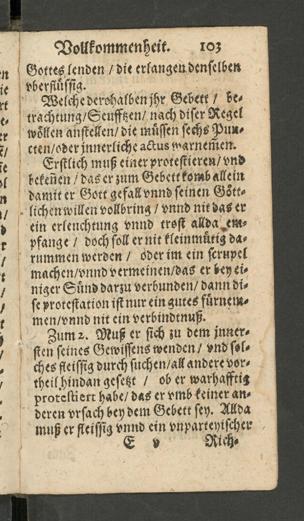 Vollkommenheit. 103
Gottes lenden / die erlangen denselben
vberflüssig.
Welche derohalben jhr Gebett / be-
trachtung / Seufftzen / nach diser Regel
wöllen anstellen / die müssen sechs Pun-
cten / oder jnnerliche actus warnemen.
Erstlich muß einer protestieren / vnd
bekeñen / das er zum Gebett komb allein
damit er Gott gefall vnnd seinen Gött-
lichen willen vollbring / vnnd nit das er
ein erleuchtung vnnd trost allda em-
pfange / doch soll er nit kleinmütig da-
rumm werden / oder im ein scrupel
machen / vnnd vermeinen / das er bey ei-
niger Sünd darzu verbunden / dann di-
se protestation ist nur ein gutes fürnem-
men / vnnd nit ein verbindtnuß.
Zum 2. Muß er sich zu dem jnner-
sten seines Gewissens wenden / vnd sol-
ches fleissig durch suchen / all andere vor-
theil hindan gesetzt / ob er warhafftig
protestiert habe / das er vmb keiner an-
deren vrsach bey dem Gebett sey. Allda
muß er fleissig vnnd ein vnparteyischer
E v Rich-